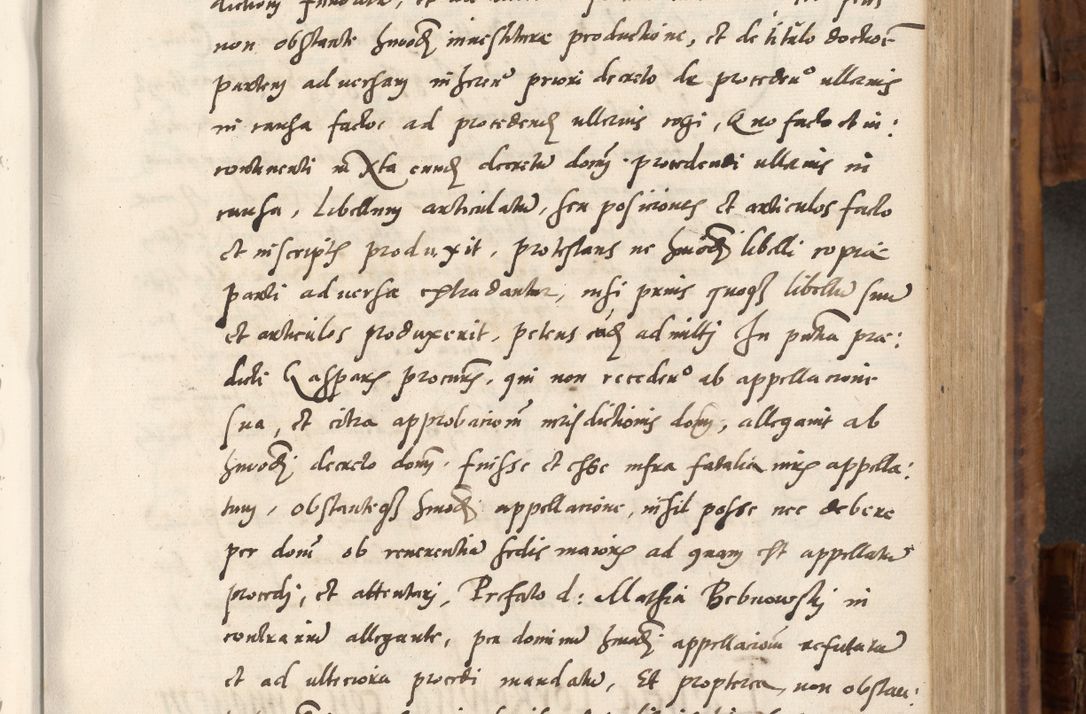 non obstante hmōi inuestiture productione, et de titulo docuē
partem aduersam inherere priori decreto de procedendo ulterius
in causa factoe ad procedend ulterius cogi, Quo facto et in:
continenti iuxta eund decretū domī procedendi ulterius in
causa, Libellum articulatū, seu posiciones et articulos facto
et inscriptis produxit, protestans ne hmōi libelli copiae
parti aduersae extradantur, nisi prius quoqꝫ libellū suū
et articulos produxerit, petens eād admitti In pntia prae:
dicti Gasparis procuris, qui non recedendo ab appellacione
sua, et citra approbacionē iurisdictionis domī, allegauit ab
hmōi decreto domī fuisse et esse infra fatalia iuris appella:
tum, obstanteqꝫ hmōi appellacione, nihil posse nec debere
per domī ob reuerentiā sedis maioris ad quam est appellatū
procedi, et attentari, Prefato d: Mathia Bebnowski in
contrariū allegante, per dominū hmōi appellacionē refutatā
et ad ulteriora procedi mandatū, Et propterea, non obstan: